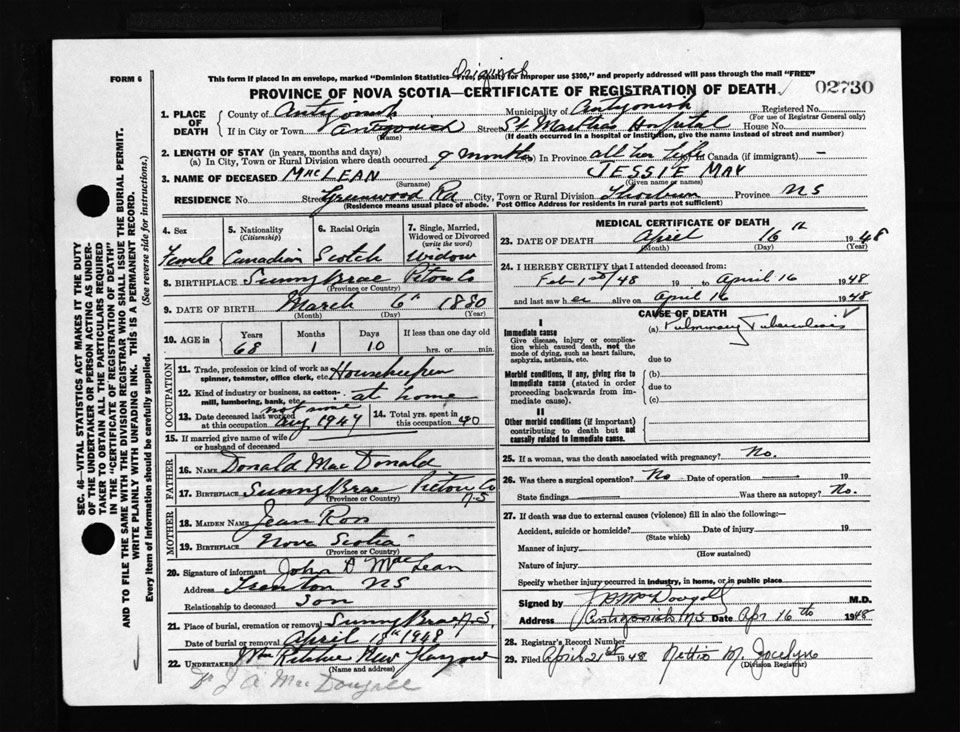 FORM 6
This form if placed in an envelope, marked "Dominion Statistics—Free, penalty for improper use $300," and properly addressed will pass through the mail "FREE"
Original
PROVINCE OF NOVA SCOTIA—CERTIFICATE OF REGISTRATION OF DEATH 02730
1. PLACE OF DEATH County of Antigonish Municipality of Antigonish Registered No.
(For use of Registrar General only)
If in City or Town Antigonish Street St Marthas Hospital House No.
(Name) (If death occurred in a hospital or institution, give the name instead of street and number)
2. LENGTH OF STAY (in years, months and days)
(a) In City, Town or Rural Division where death occurred. 9 months (b) In Province all her life (c) In Canada (if immigrant) —
3. NAME OF DECEASED MacLEAN JESSIE MAY
(Surname) (Given name or names)
RESIDENCE No. Street Greenwood Rd City, Town or Rural Division Thorburn Province NS
(Residence means usual place of abode. Post Office Address for residents in rural parts not sufficient)
4. Sex 5. Nationality (Citizenship) 6. Racial Origin 7. Single, Married, Widowed or Divorced (write the word)
Female Canadian Scotch Widow
8. BIRTHPLACE Sunny Brae Pictou Co
(Province or Country)
9. DATE OF BIRTH March 6th 1880
(Month) (Day) (Year)
10. AGE in Years Months Days If less than one day old
68 1 10 hrs. or min.
OCCUPATION
11. Trade, profession or kind of work as spinner, teamster, office clerk, etc. Housekeeper
12. Kind of industry or business, as cotton-mill, lumbering, bank, etc. at home
13. Date deceased last worked at this occupation Aug 1947
14. Total yrs. spent in this occupation 40
15. If married give name of wife or husband of deceased
FATHER
16. NAME Donald MacDonald
17. BIRTHPLACE Sunny Brae Pictou Co N-S
(Province or Country)
MOTHER
18. MAIDEN NAME Jean Ross
19. BIRTHPLACE Nova Scotia
(Province or Country)
20. Signature of informant John D MacLean
Address Trenton NS
Relationship to deceased Son
21. Place of burial, cremation or removal Sunny Brae N.S.
Date of burial or removal April 18th 1948
22. UNDERTAKER Ritchie New Glasgow
(Name and address)
Dr J A MacDougall
MEDICAL CERTIFICATE OF DEATH
23. DATE OF DEATH April 16th 1948
(Month) (Day) (Year)
24. I HEREBY CERTIFY that I attended deceased from:
Feb 1st/48 19 to April 16 1948
and last saw her alive on April 16 1948
CAUSE OF DEATH
I
Immediate cause (a) Pulmonary Tuberculosis
Give disease, injury or complication which caused death, not the mode of dying, such as heart failure, asphyxia, asthenia, etc.
due to
Morbid conditions, if any, giving rise to immediate cause (stated in order proceeding backwards from immediate cause).
(b)
due to
(c)
II
Other morbid conditions (if important) contributing to death but not causally related to immediate cause.
25. If a woman, was the death associated with pregnancy? No.
26. Was there a surgical operation? No Date of operation 19
State findings Was there an autopsy? No.
27. If death was due to external causes (violence) fill in also the following:—
Accident, suicide or homicide? Date of injury 19
(State which)
Manner of injury
(How sustained)
Nature of injury
Specify whether injury occurred in industry, in home, or in public place
Signed by J A McDougall M.D.
Address Antigonish NS Date Apr 16th 1948
28. Registrar's Record Number
29. Filed April 21st 1948 Nettie M. Jocelyn
(Division Registrar)
SEC. 46—VITAL STATISTICS ACT MAKES IT THE DUTY
OF THE UNDERTAKER OR PERSON ACTING AS UNDER-
TAKER TO OBTAIN ALL THE PARTICULARS REQUIRED
IN THE "CERTIFICATE OF REGISTRATION OF DEATH"
AND TO FILE THE SAME WITH THE DIVISION REGISTRAR WHO SHALL ISSUE THE BURIAL PERMIT.
WRITE PLAINLY WITH UNFADING INK. THIS IS A PERMANENT RECORD.
Every item of Information should be carefully supplied. (See reverse side for instructions.)